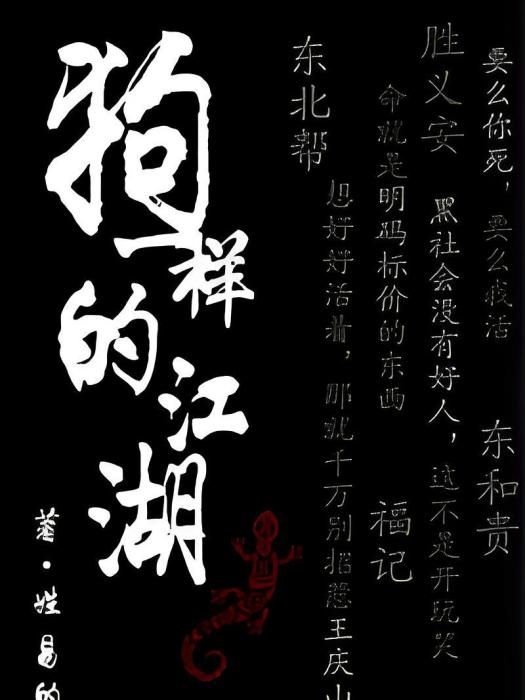 要么你死，要么我活
东和贵
胜义安
黑社会没有好人，这不是开玩笑
命就是明码标价的东西
福记
东北帮
想好好活着，那就千万别招惹王庆山
狗一样的江湖
著·姓易的